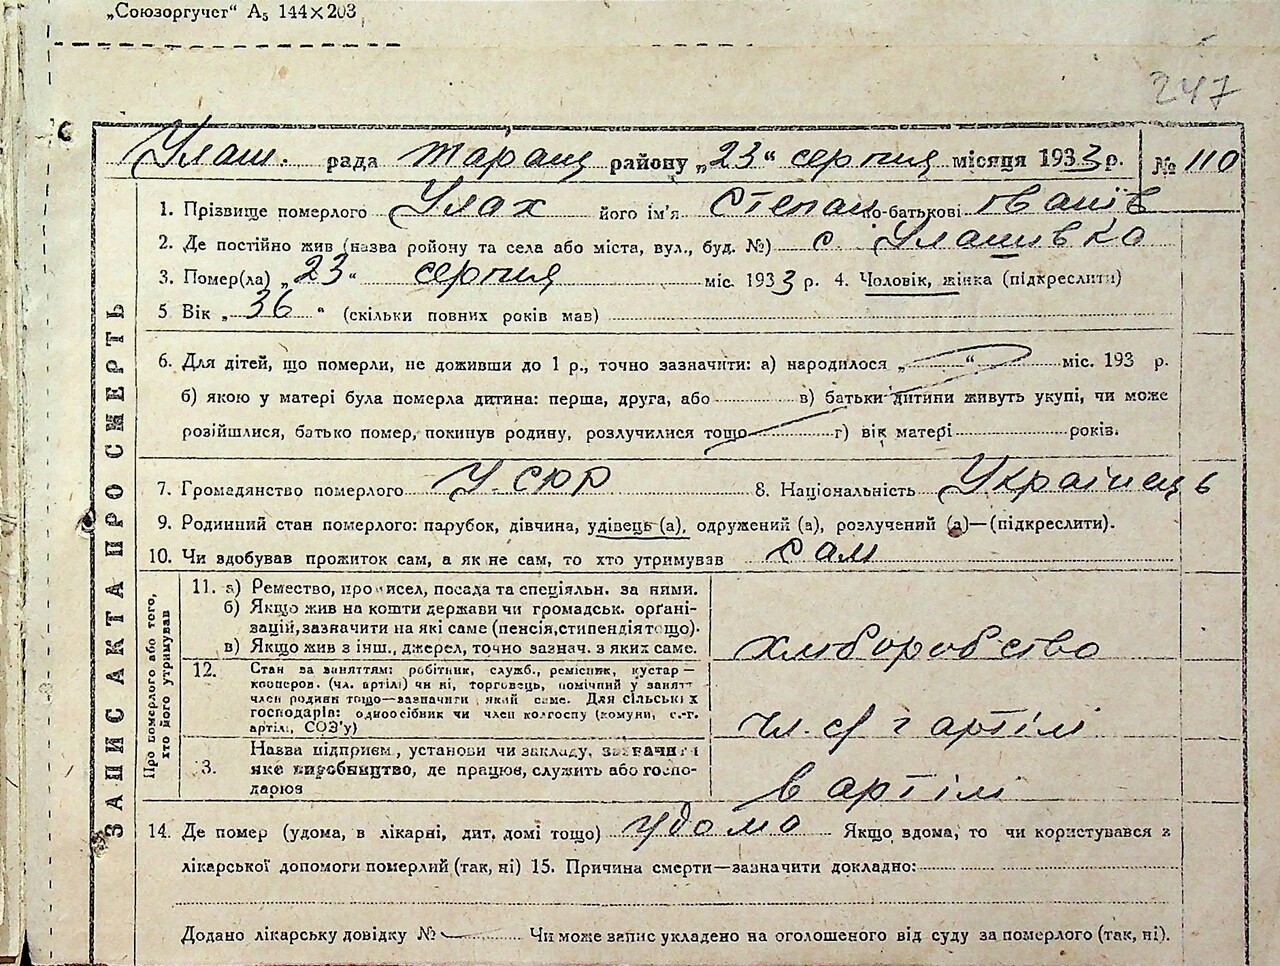 „Союзоргучет“ А₅ 144×203
247
Улаш. рада Таращ району „23“ серпня місяця 1933 р. № 110
1. Прізвище померлого Улах його ім'я Степан по-батькові Іванів
2. Де постійно жив (назва району та села або міста, вул., буд. №) с. Улашівка
3. Помер(ла) „23“ серпня міс. 1933 р. 4. Чоловік, жінка (підкреслити)
5 Вік „36“ (скільки повних років мав)
6. Для дітей, що померли, не доживши до 1 р., точно зазначити: а) народилося „ “ міс. 193 р.
б) якою у матері була померла дитина: перша, друга, або в) батьки дитини живуть укупі, чи може
розійшлися, батько помер, покинув родину, розлучилися тощо г) вік матері років.
7. Громадянство померлого УСРР 8. Національність Українець
9. Родинний стан померлого: парубок, дівчина, удівець (а), одружений (а), розлучений (а)—(підкреслити).
10. Чи здобував прожиток сам, а як не сам, то хто утримував сам
ЗАПИС АКТА ПРО СМЕРТЬ
Про померлого або того, хто його утримував
11. а) Ремество, промисел, посада та спеціяльн. за ними.
б) Якщо жив на кошти держави чи громадськ. орґані-
зацій, зазначити на які саме (пенсія, стипендія тощо).
в) Якщо жив з інш., джерел, точно зазнач. з яких саме.
хліборобство
12. Стан за заняттям: робітник, служб., ремісник, кустар—
кооперов. (чл. артілі) чи ні, торговець, помічний у занятт
член родини тощо—зазначити який саме. Для сільських
господарів: одноосібник чи член колгоспу (комуни, с.-г.
артілі, СОЗ'у)
чл. с/г артілі
Назва підприєм., установи чи закладу, зазначити
3. яке виробництво, де працює, служить або госпо-
дарює
в артілі
14. Де помер (удома, в лікарні, дит. домі тощо) удома Якщо вдома, то чи користувався з
лікарської допомоги померлий (так, ні) 15. Причина смерти—зазначити докладно:
Додано лікарську довідку № Чи може запис укладено на оголошеного від суду за померлого (так, ні).